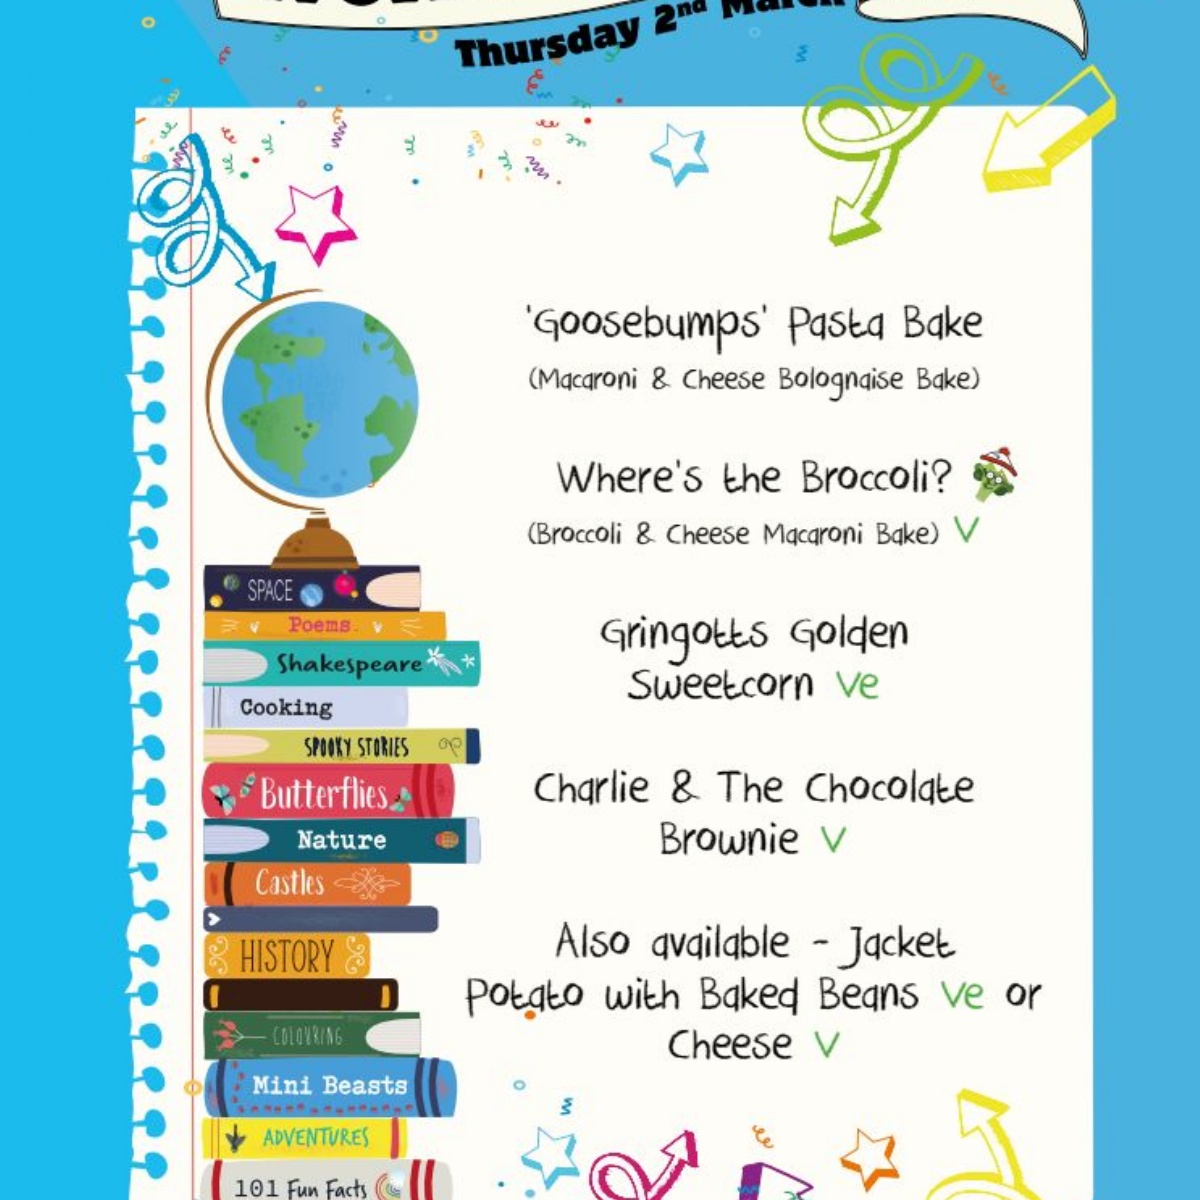 Thursday 2nd March
'Goosebumps' Pasta Bake
(Macaroni & Cheese Bolognaise Bake)
Where's the Broccoli?
(Broccoli & Cheese Macaroni Bake) V
Gringotts Golden
Sweetcorn Ve
Charlie & The Chocolate
Brownie V
Also available - Jacket
Potato with Baked Beans Ve or
Cheese V
SPACE
Poems
Shakespeare
Cooking
SPOOKY STORIES
Butterflies
Nature
Castles
HISTORY
COLOURING
Mini Beasts
ADVENTURES
101 Fun Facts